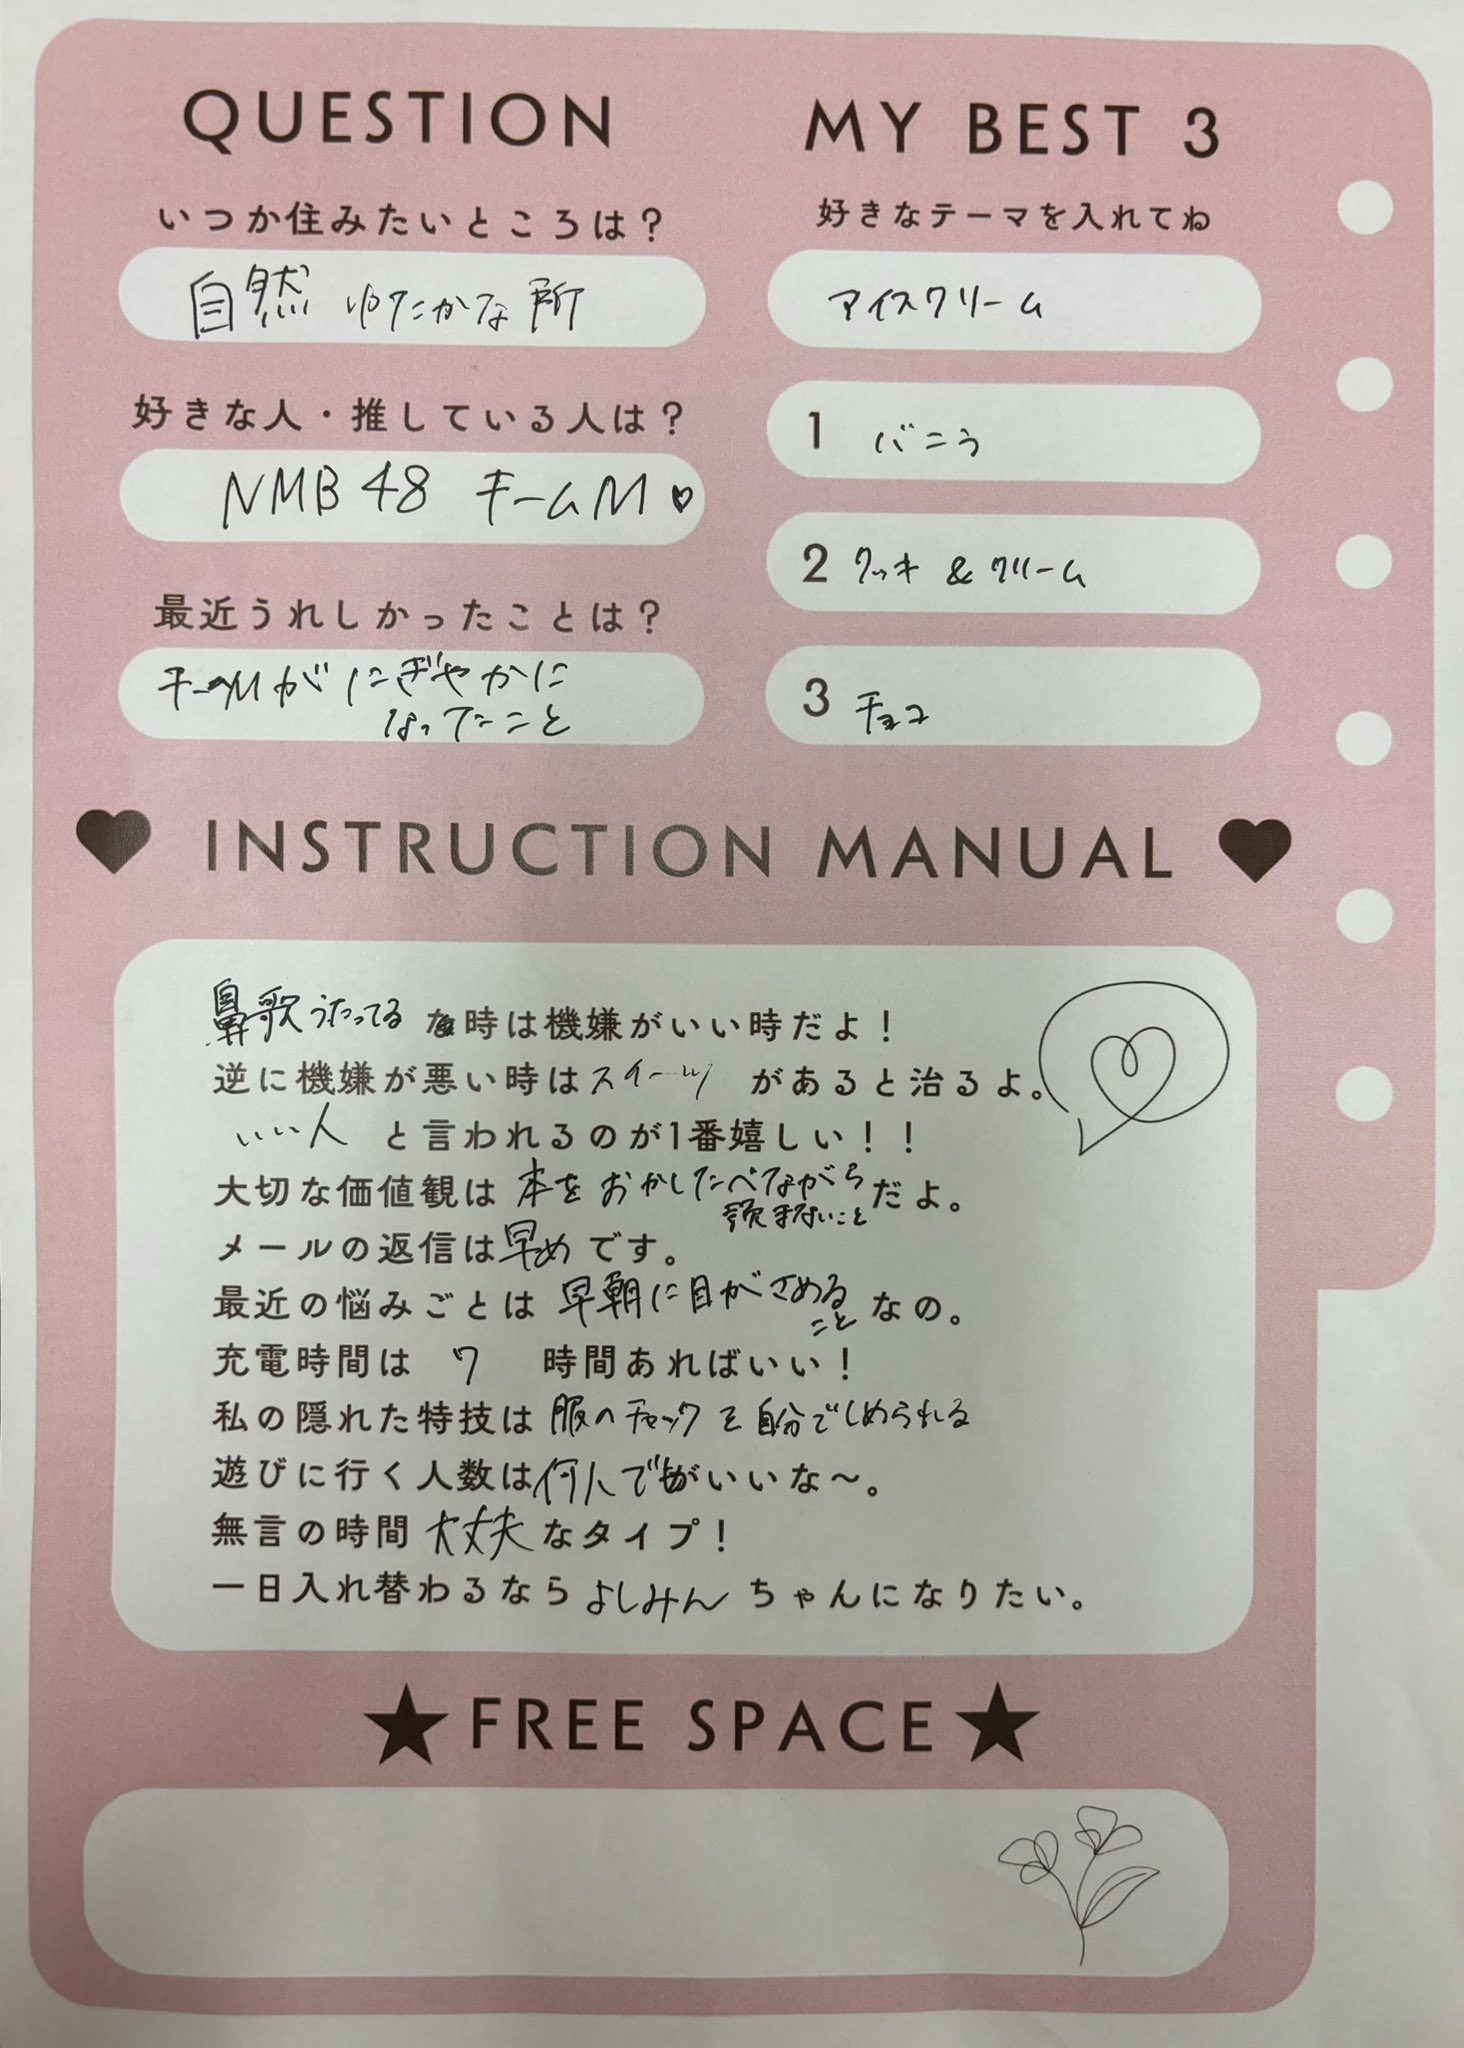 QUESTION
いつか住みたいところは?
自然 ゆたかな所
好きな人・推している人は?
NMB48 チームM♥
最近うれしかったことは?
チームMが にぎやかに
なってたこと
MY BEST 3
好きなテーマを入れてね
アイスクリーム
1 バニラ
2 クッキ & クリーム
3 チョコ
♥ INSTRUCTION MANUAL ♥
鼻歌うたってる な時は機嫌がいい時だよ!
逆に機嫌が悪い時はスイーツ があると治るよ。
いい人 と言われるのが1番嬉しい!!
大切な価値観は 本をおかしたべながら
読まないこと だよ。
メールの返信は早めです。
最近の悩みごとは 早朝に目がさめる
こと なの。
充電時間は 7 時間あればいい!
私の隠れた特技は 服のチャックを自分でしめられる
遊びに行く人数は何人でもがいいな〜。
無言の時間 大丈夫 なタイプ!
一日入れ替わるなら よしみん ちゃんになりたい。
★FREE SPACE★